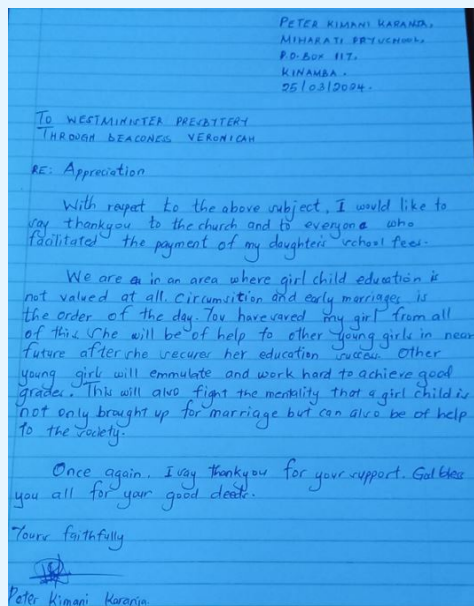 PETER KIMANI KARANJA,
MIHARATI PRYSCHOOL,
P.O. BOX 117,
KINAMBA.
25/03/2024.
TO WESTMINISTER PRESBYTERY
THROUGH DEACONESS VERONICAH
RE: Appreciation
With respect to the above subject, I would like to
say thankyou to the church and to everyone who
facilitated the payment of my daughter's school fees.
We are in an area where girl child education is
not valued at all. Circumsition and early marriages is
the order of the day. You have saved my girl from all
of this. She will be of help to other young girls in near
future after she secures her education success. Other
young girls will emmulate and work hard to achieve good
grades. This will also fight the mentality that a girl child is
not only brought up for marriage but can also be of help
to the society.
Once again. I say thankyou for your support. God bless
you all for your good deeds.
Yours faithfully
Peter Kimani Karanja.